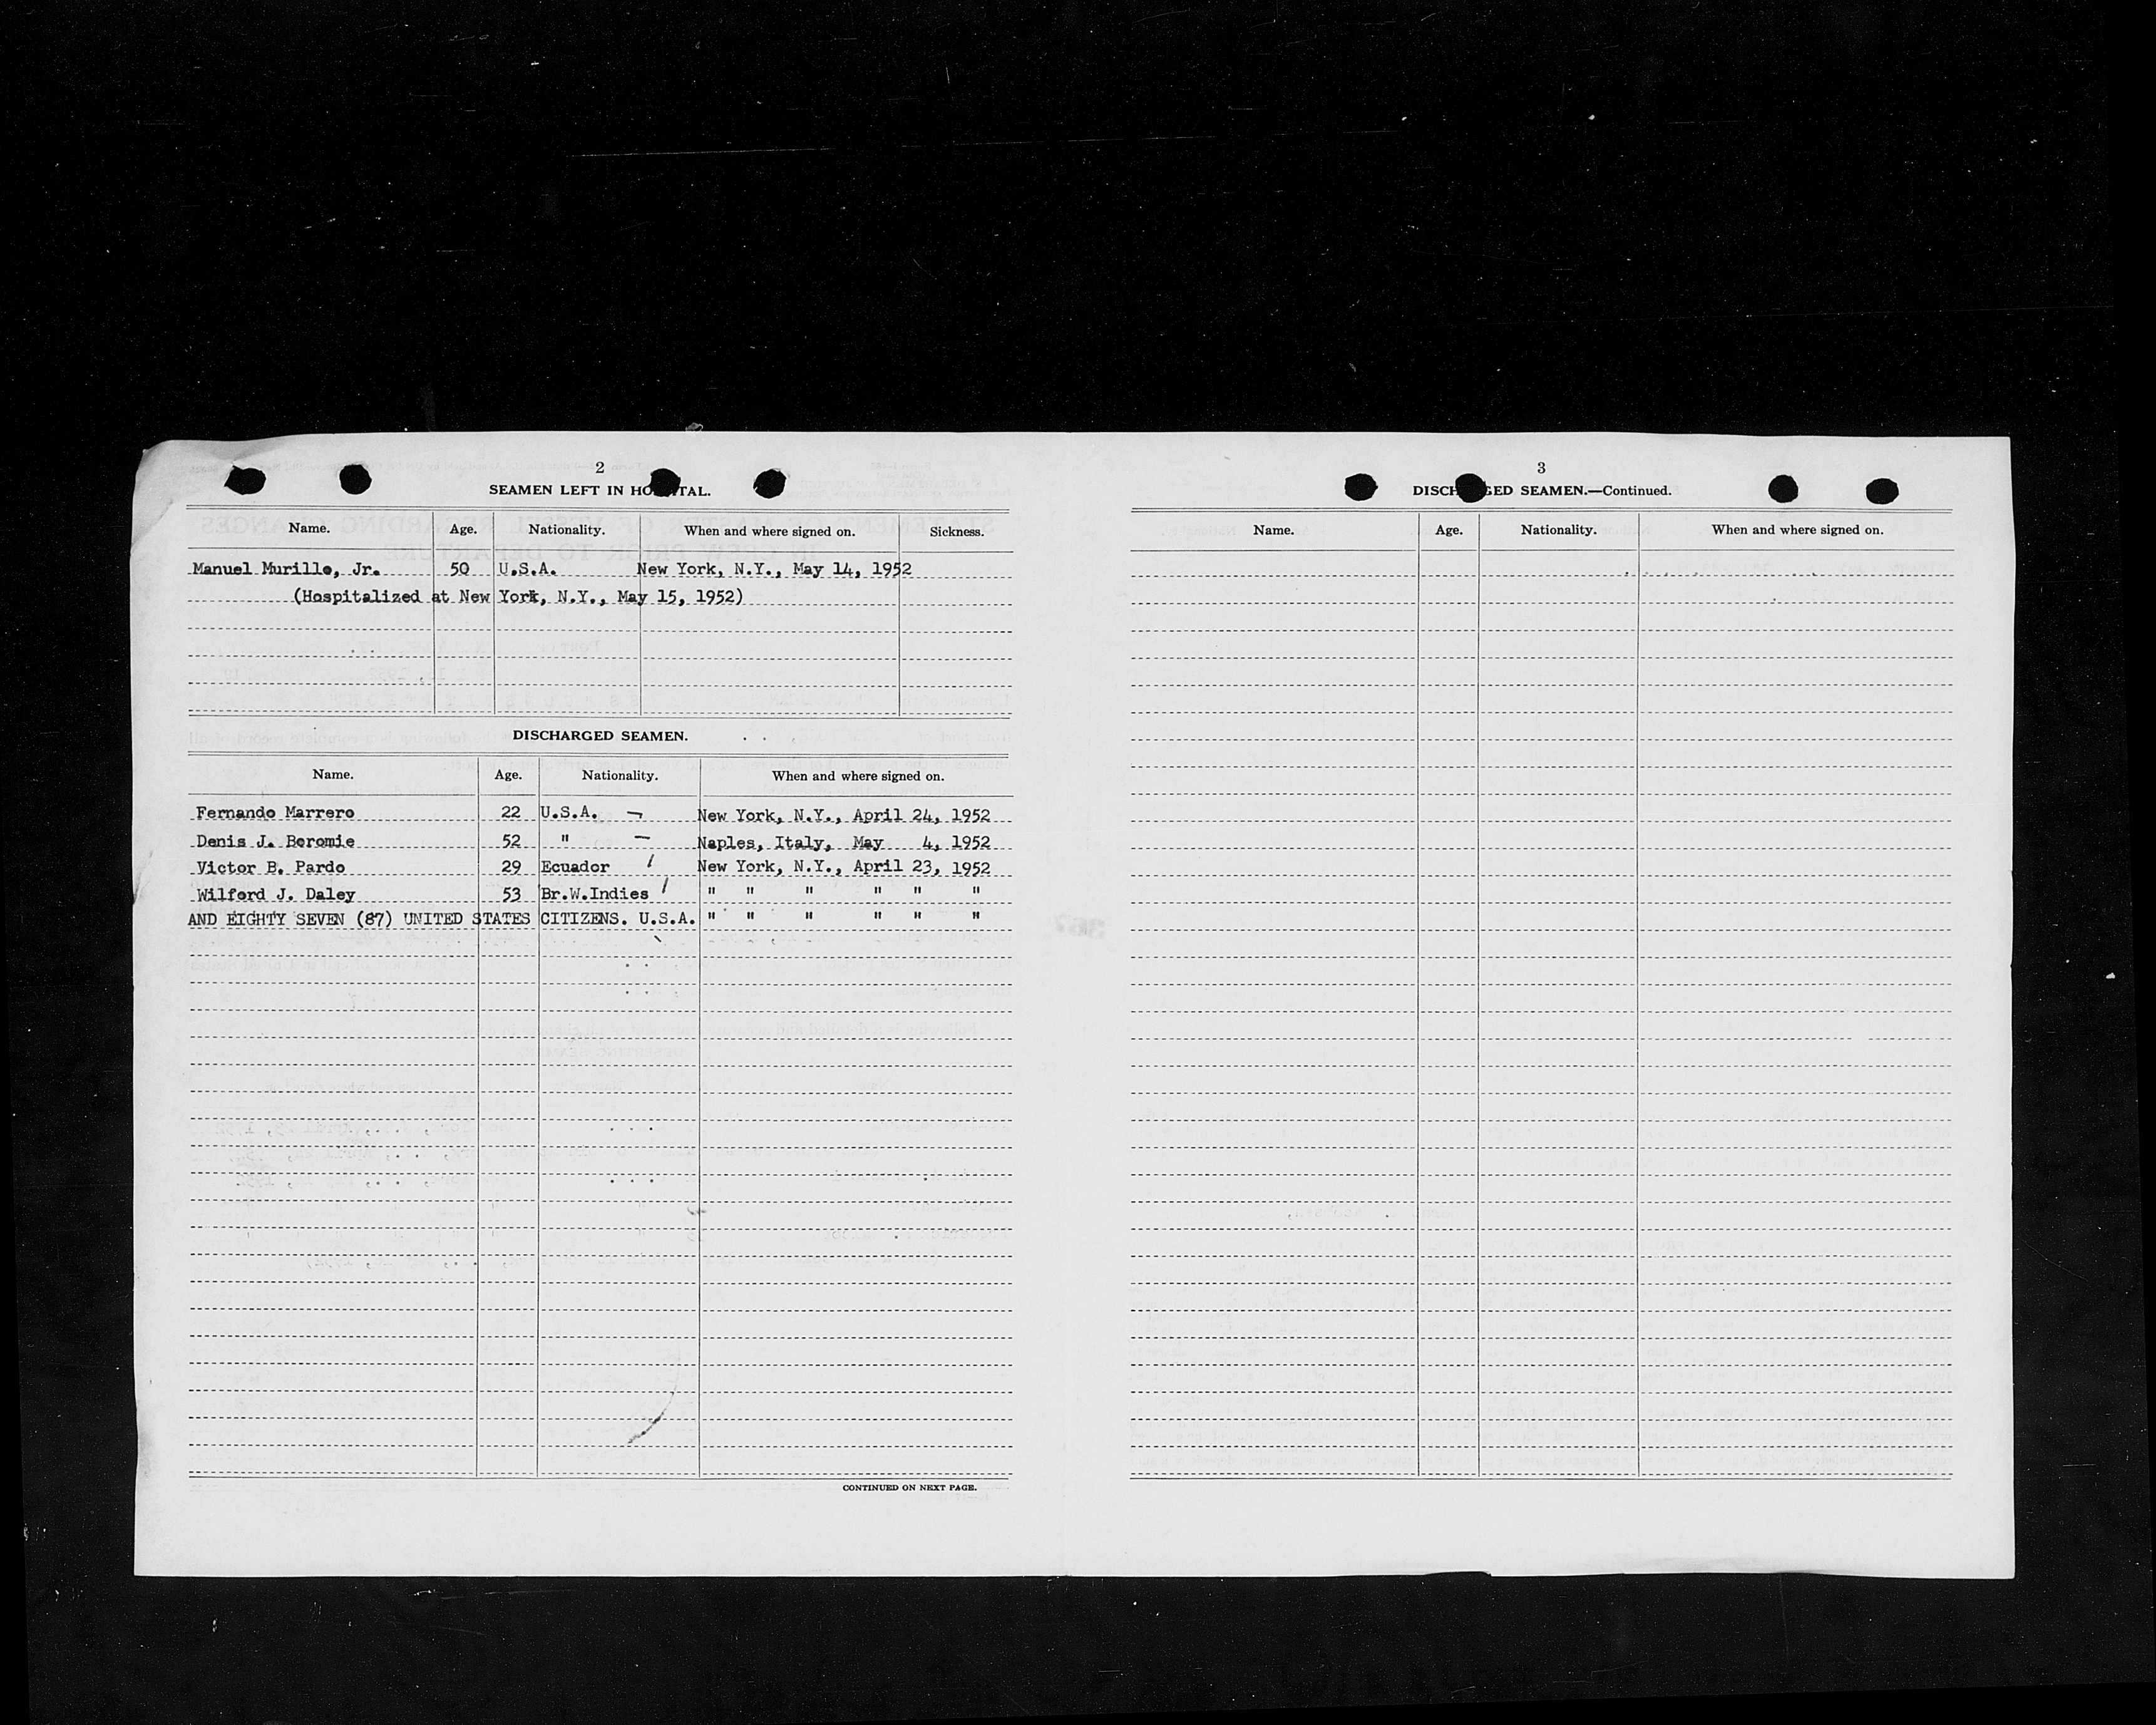 2
SEAMEN LEFT IN HO TAL.
Name. Age. Nationality. When and where signed on. Sickness.
Manuel Murillo, Jr. 50 U.S.A. New York, N.Y., May 14, 1952
(Hospitalized at New York, N.Y., May 15, 1952)
DISCHARGED SEAMEN.
Name. Age. Nationality. When and where signed on.
Fernando Marrero 22 U.S.A. — New York, N.Y., April 24, 1952
Denis J. Beromie 52 " — Naples, Italy, May 4, 1952
Victor B. Pardo 29 Ecuador / New York, N.Y., April 23, 1952
Wilford J. Daley 53 Br.W.Indies / " " " " " "
AND EIGHTY SEVEN (87) UNITED STATES CITIZENS. U.S.A. " " " " " "
CONTINUED ON NEXT PAGE.
3
DISCH GED SEAMEN.—Continued.
Name. Age. Nationality. When and where signed on.